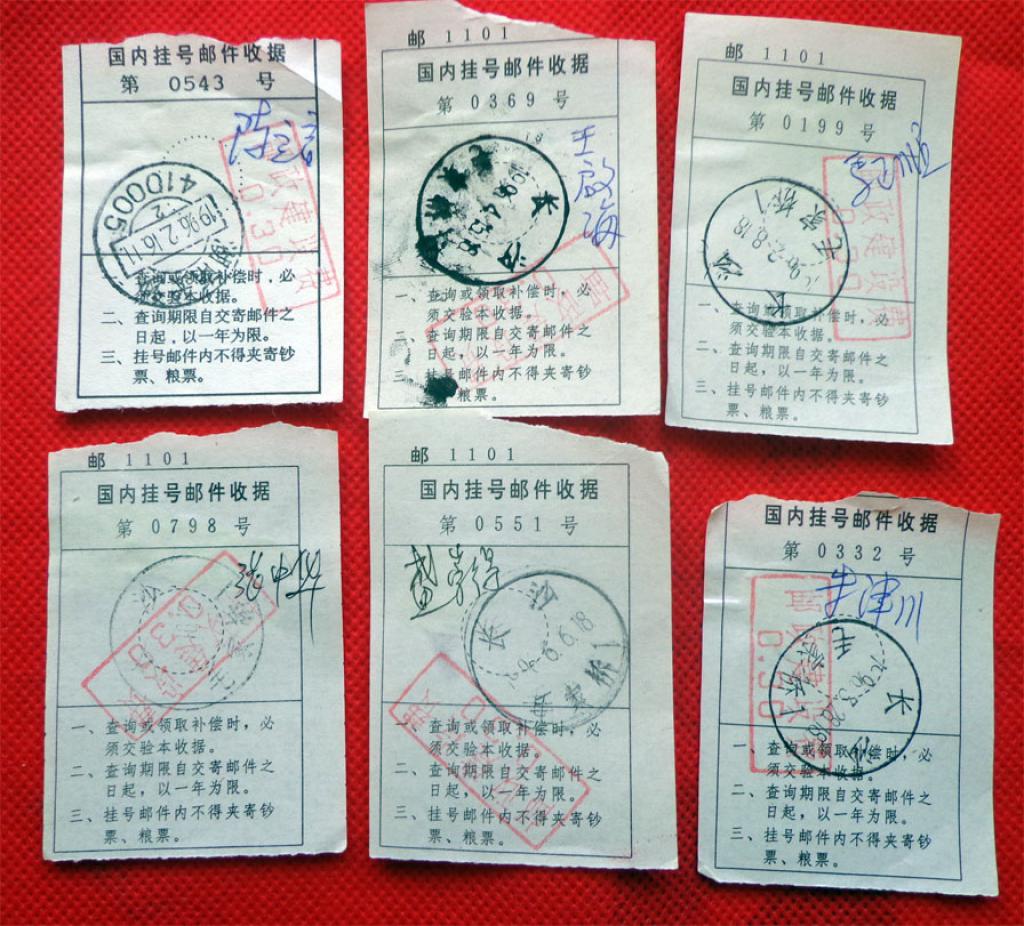 国内挂号邮件收据
第 0543 号
410005
1996.2.16.11
一、查询或领取补偿时，必
须交验本收据。
二、查询期限自交寄邮件之
日起，以一年为限。
三、挂号邮件内不得夹寄钞
票、粮票。
邮 1101
国内挂号邮件收据
第 0369 号
王啟海
长
一、查询或领取补偿时，必
须交验本收据。
二、查询期限自交寄邮件之
日起，以一年为限。
三、挂号邮件内不得夹寄钞
票、粮票。
邮 1101
国内挂号邮件收据
第 0199 号
长沙
一、查询或领取补偿时，必
须交验本收据。
二、查询期限自交寄邮件之
日起，以一年为限。
三、挂号邮件内不得夹寄钞
票、粮票。
邮 1101
国内挂号邮件收据
第 0798 号
张中华
一、查询或领取补偿时，必
须交验本收据。
二、查询期限自交寄邮件之
日起，以一年为限。
三、挂号邮件内不得夹寄钞
票、粮票。
邮 1101
国内挂号邮件收据
第 0551 号
长沙
一、查询或领取补偿时，必
须交验本收据。
二、查询期限自交寄邮件之
日起，以一年为限。
三、挂号邮件内不得夹寄钞
票、粮票。
国内挂号邮件收据
第 0332 号
牛津川
长沙
一、查询或领取补偿时，必
须交验本收据。
二、查询期限自交寄邮件之
日起，以一年为限。
三、挂号邮件内不得夹寄钞
票、粮票。